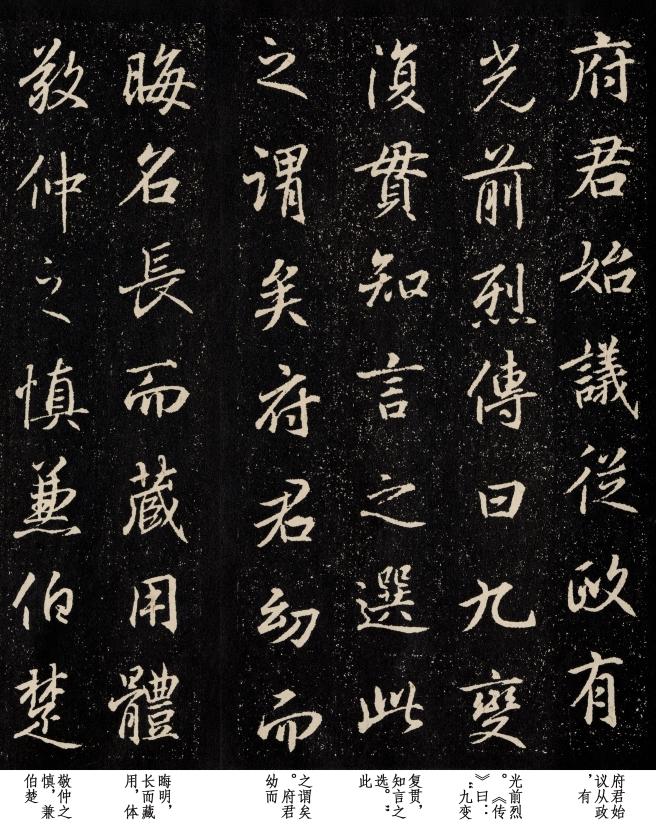 府君始議從政有
光前烈傳曰九變
復貫知言之選此
之謂矣府君幼而
晦名長而蔵用體
敬仲之慎兼伯楚
府君始
议从政
，有
光前烈
。《传
》曰：
“九变
复贯，
知言之
选。”
此
之谓矣
。府君
幼而
晦明，
长而藏
用，体
敬仲之
慎，兼
伯楚